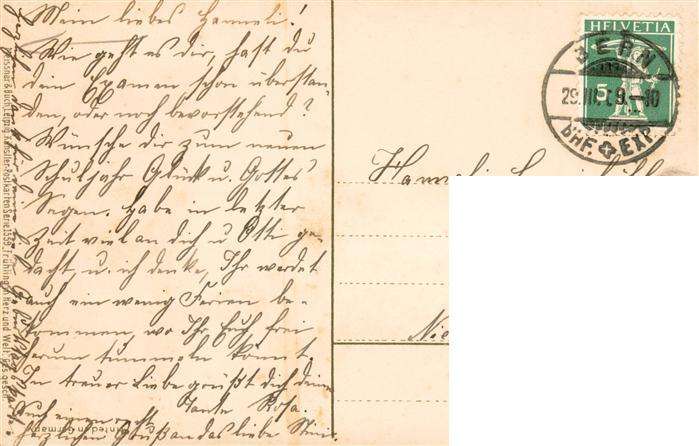 Mein liebes Hanneli!
Wie geht es dir, hast du
dein Examen schon überstan-
den, oder noch bevorstehend?
Wünsche dir zum neuen
Schuljahr Glück u. Gottes
Segen. Habe in letzter
Zeit viel an dich u. Otti ge-
dacht, u. ich denke, Ihr werdet
auch ein wenig Ferien be-
kommen, wo Ihr Euch frei
herum tummeln könnt.
In treuer Liebe grüsst dich deine
Tante Rosa.
Auch einen recht
herzlichen Gruss an das liebe
Meissner & Buch, Leipzig, Künstler-Postkarten Serie 1569. Frühling in Herz und Welt. Ges. gesch.
Printed in Germany
HELVETIA
5
BERN
29. III. 9.–10
BHF. EXP.
Hanneli